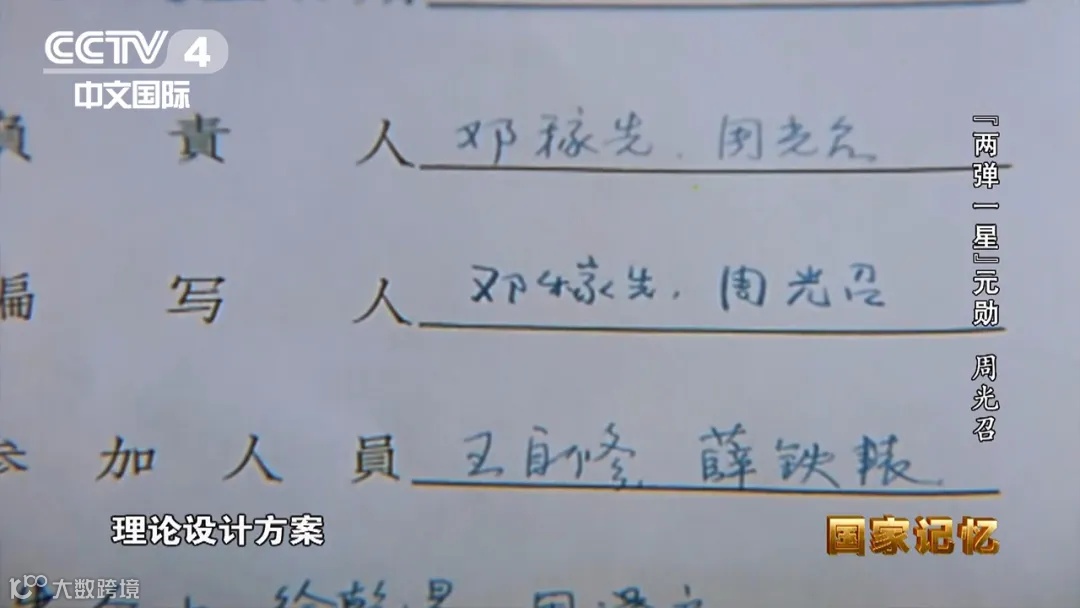 CCTV 4
中文国际
负責人 邓稼先、周光召
编写人 邓稼先、周光召
参加人員 王自修 薛铁辕
『两弹一星』元勋 周光召
理论设计方案
国家记忆
大数跨境